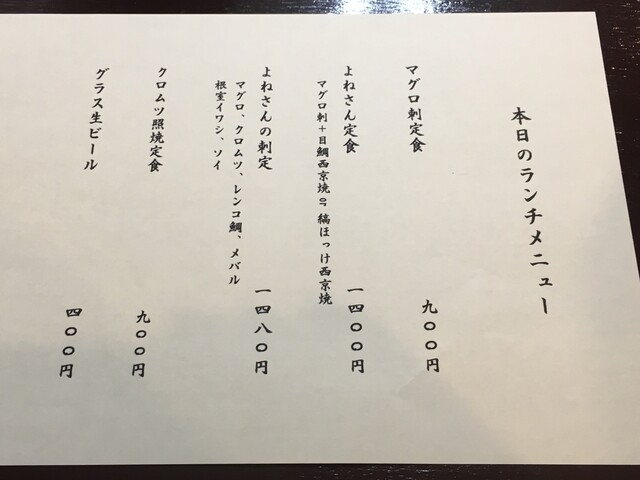 本日のランチメニュー
マグロ刺定食
九〇〇円
よねさん定食
一四〇〇円
マグロ刺+目鯛西京焼 or 縞ほっけ西京焼
よねさんの刺定
一四八〇円
マグロ、クロムツ、レンコ鯛、メバル
根室イワシ、ソイ
クロムツ照焼定食
九〇〇円
グラス生ビール
四〇〇円